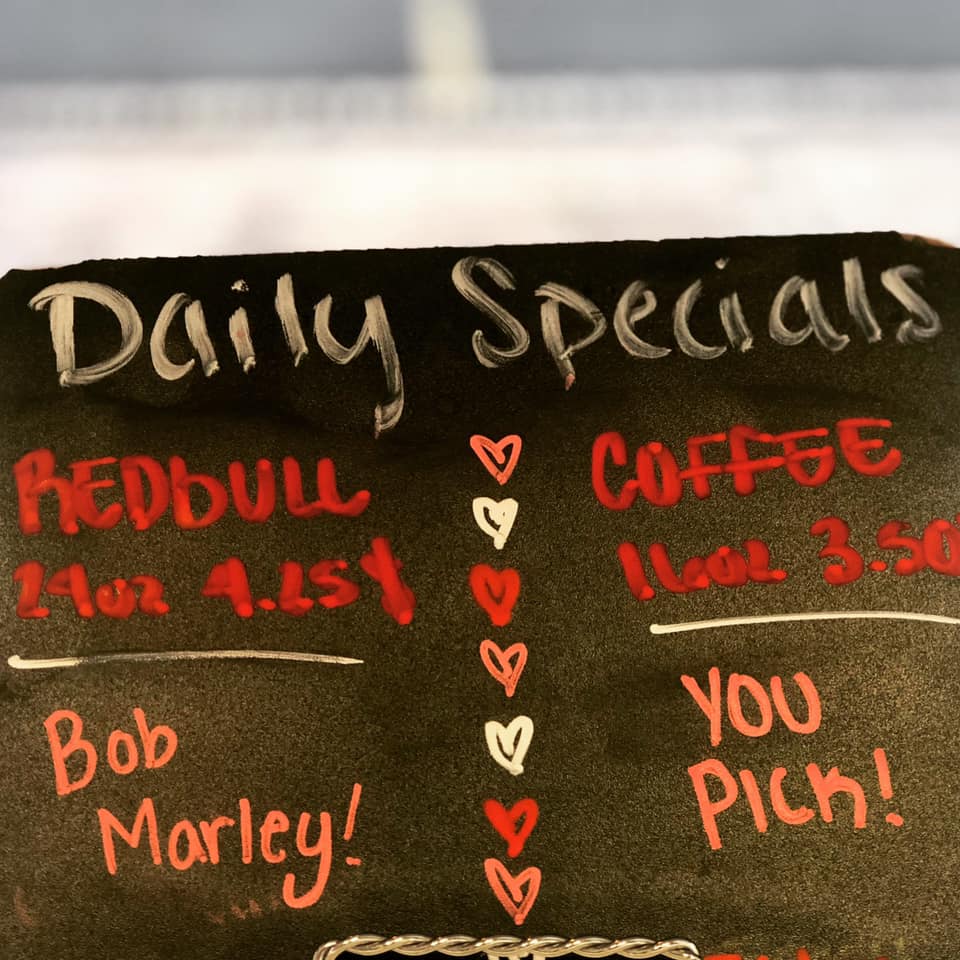 Daily Specials
REDbULL
24oz 4.25
Bob
Marley!
COFFEE
16oz 3.50
YOU
PICK!